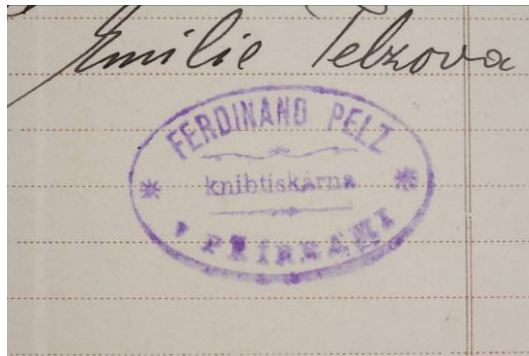 Emilie Pelzova
FERDINAND PELZ
knihtiskárna
v PŘÍBRAMI